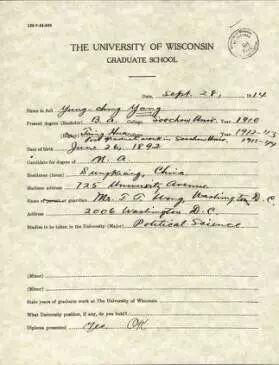 THE UNIVERSITY OF WISCONSIN
GRADUATE SCHOOL
Date, Sept. 28, 1914
Name in full Yung-ching Yang
Present degrees (Bachelor) B.A. College Soochow Univ. Year 1910
Tsing Hua Year 1912-13
Post graduate work in Soochow Univ. 1911-
Date of birth June 26, 1892
Candidate for degree of M. A.
Residence (town) Sungkiang, China
Madison address 725 University Avenue
Name of Mr. T. T. Wong, Washington D. C.
Address 2006 Washington D. C.
Studies to be taken in the University (Major) Political Science
(Minor)
(Minor)
State years of graduate work at The University of Wisconsin
What University position, if any, do you hold?
Diploma presented Yes OK